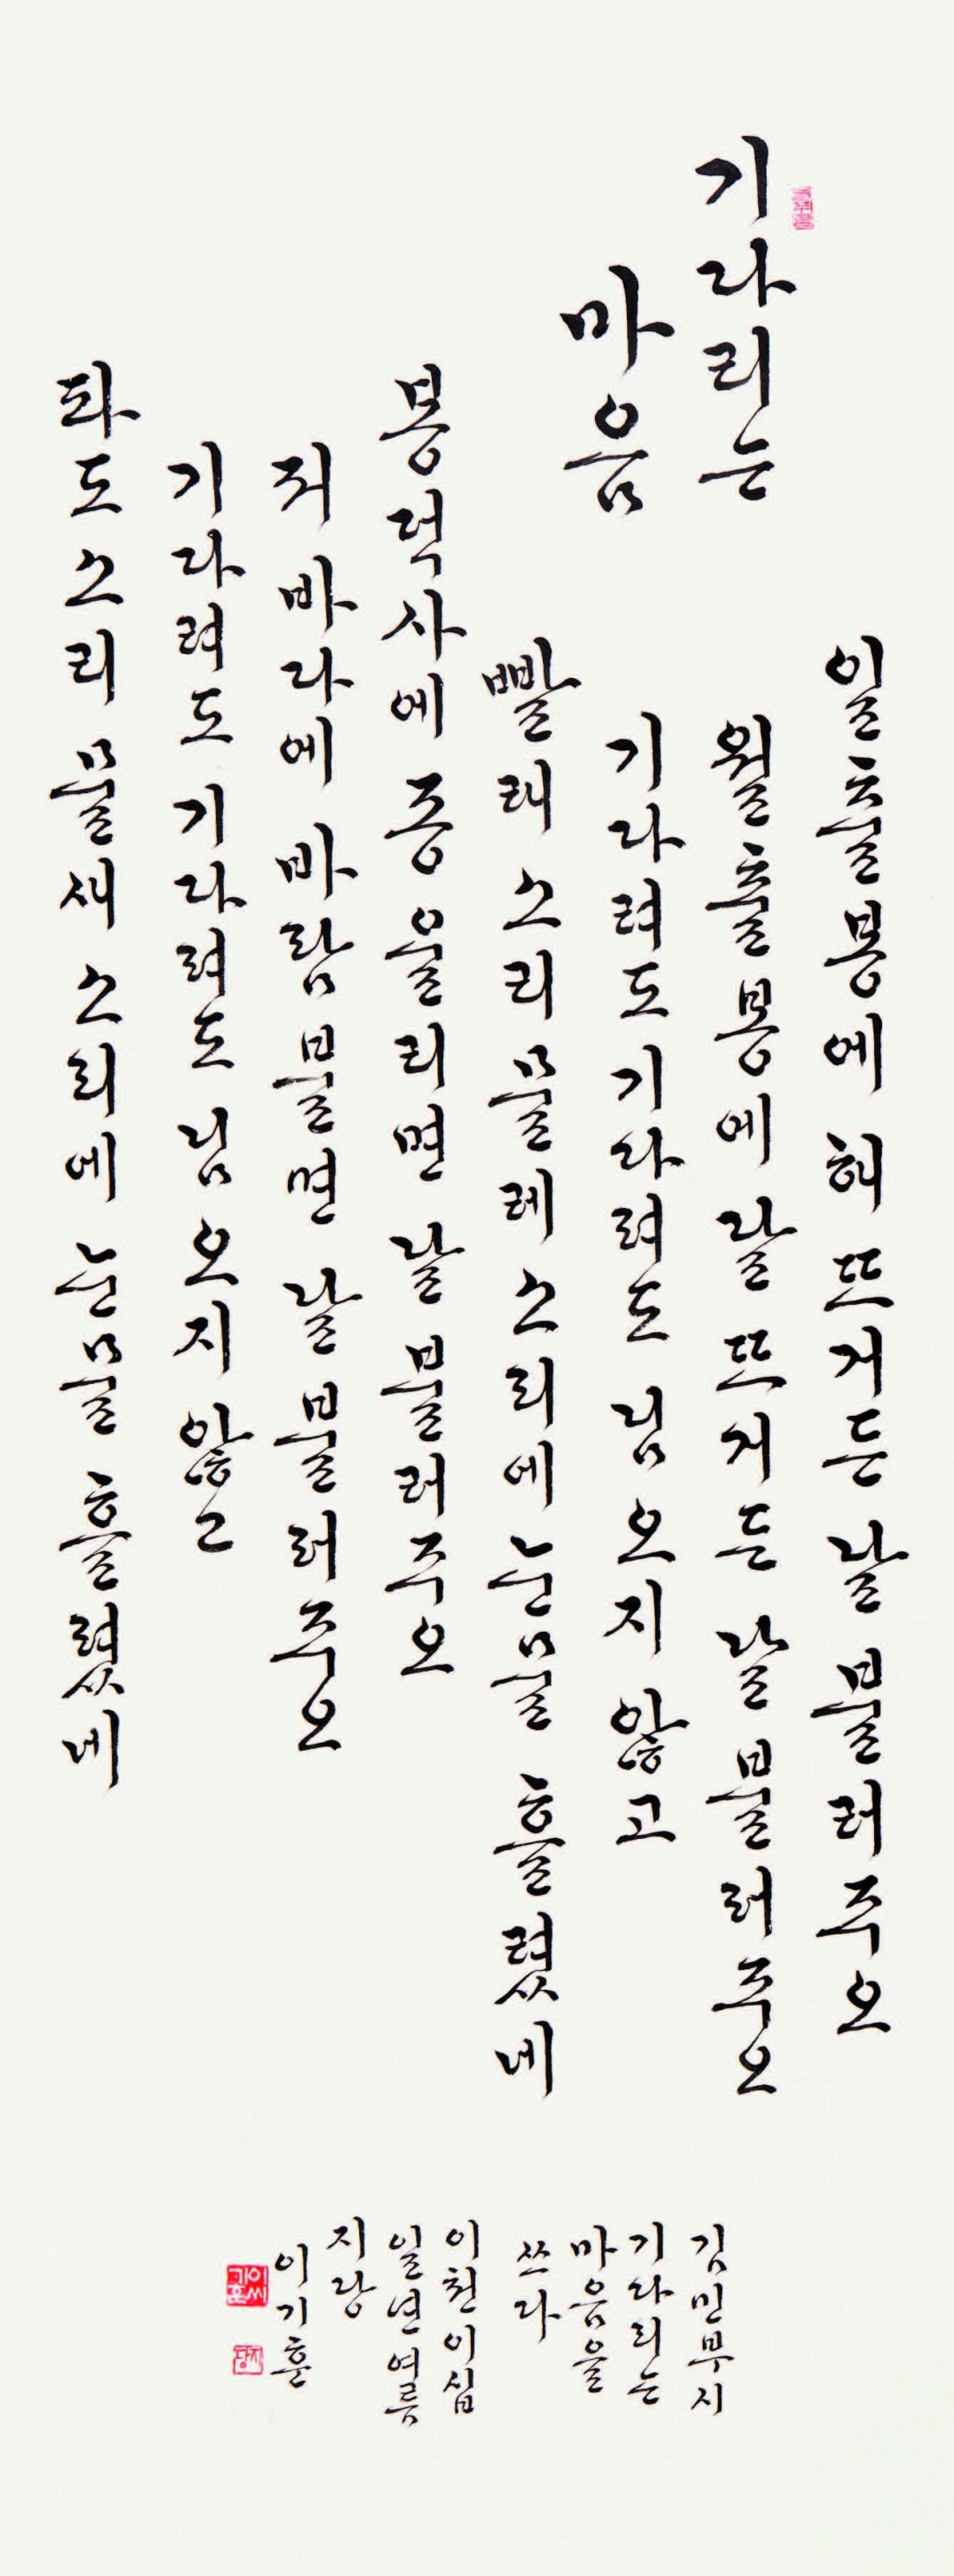 기다리는
마음
일출봉에 해 뜨거든 날 불러주오
월출봉에 달 뜨거든 날 불러주오
기다려도 기다려도 님 오지 않고
빨래 소리 물레 소리에 눈물 흘렸네
봉덕사에 종 울리면 날 불러주오
저 바다에 바람 불면 날 불러주오
기다려도 기다려도 님 오지 않고
파도 소리 물새 소리에 눈물 흘렸네
김민부 시
기다리는
마음을
쓰다
이천이십
일년여름
지당
이기훈
이씨기훈
지당